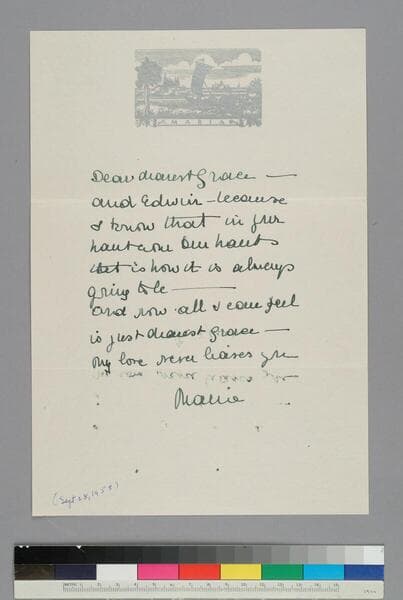 MARIA
Dear dearest Grace —
and Edwin – because
I know that in your
heart and our hearts
that is how it is always
going to be —
and now all I can feel
is just dearest Grace —
My love never leaves you
Maria
(Sept 28, 1958)